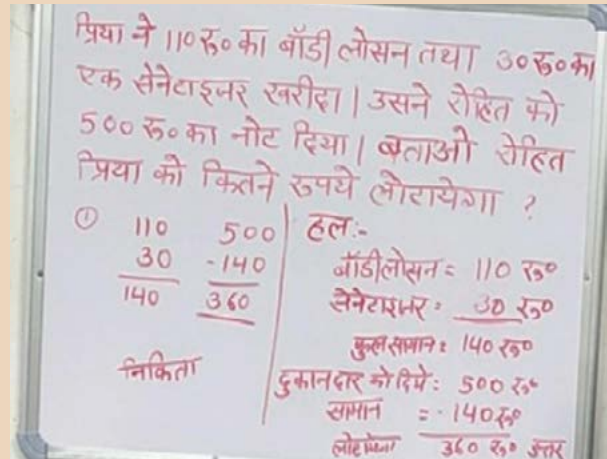 प्रिया ने 110 रु० का बॉडी लोसन तथा 30 रु० का
एक सेनेटाइजर खरीदा। उसने रोहित को
500 रु० का नोट दिया। बताओ रोहित
प्रिया को कितने रुपये लोटायेगा ?
①
110
30
140
500
-140
360
निकिता
हल:-
बॉडीलोसन = 110 रु०
सेनेटाइजर = 30 रु०
कुल सामान = 140 रु०
दुकानदार को दिये = 500 रु०
सामान = -140 रु०
लोटायेगा 360 रु० उत्तर